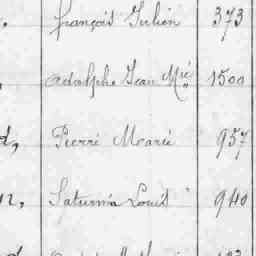 françois Julien 373
Adolphe Jean Mié 1500
Pierre Marie 957
Saturnin Louis 940